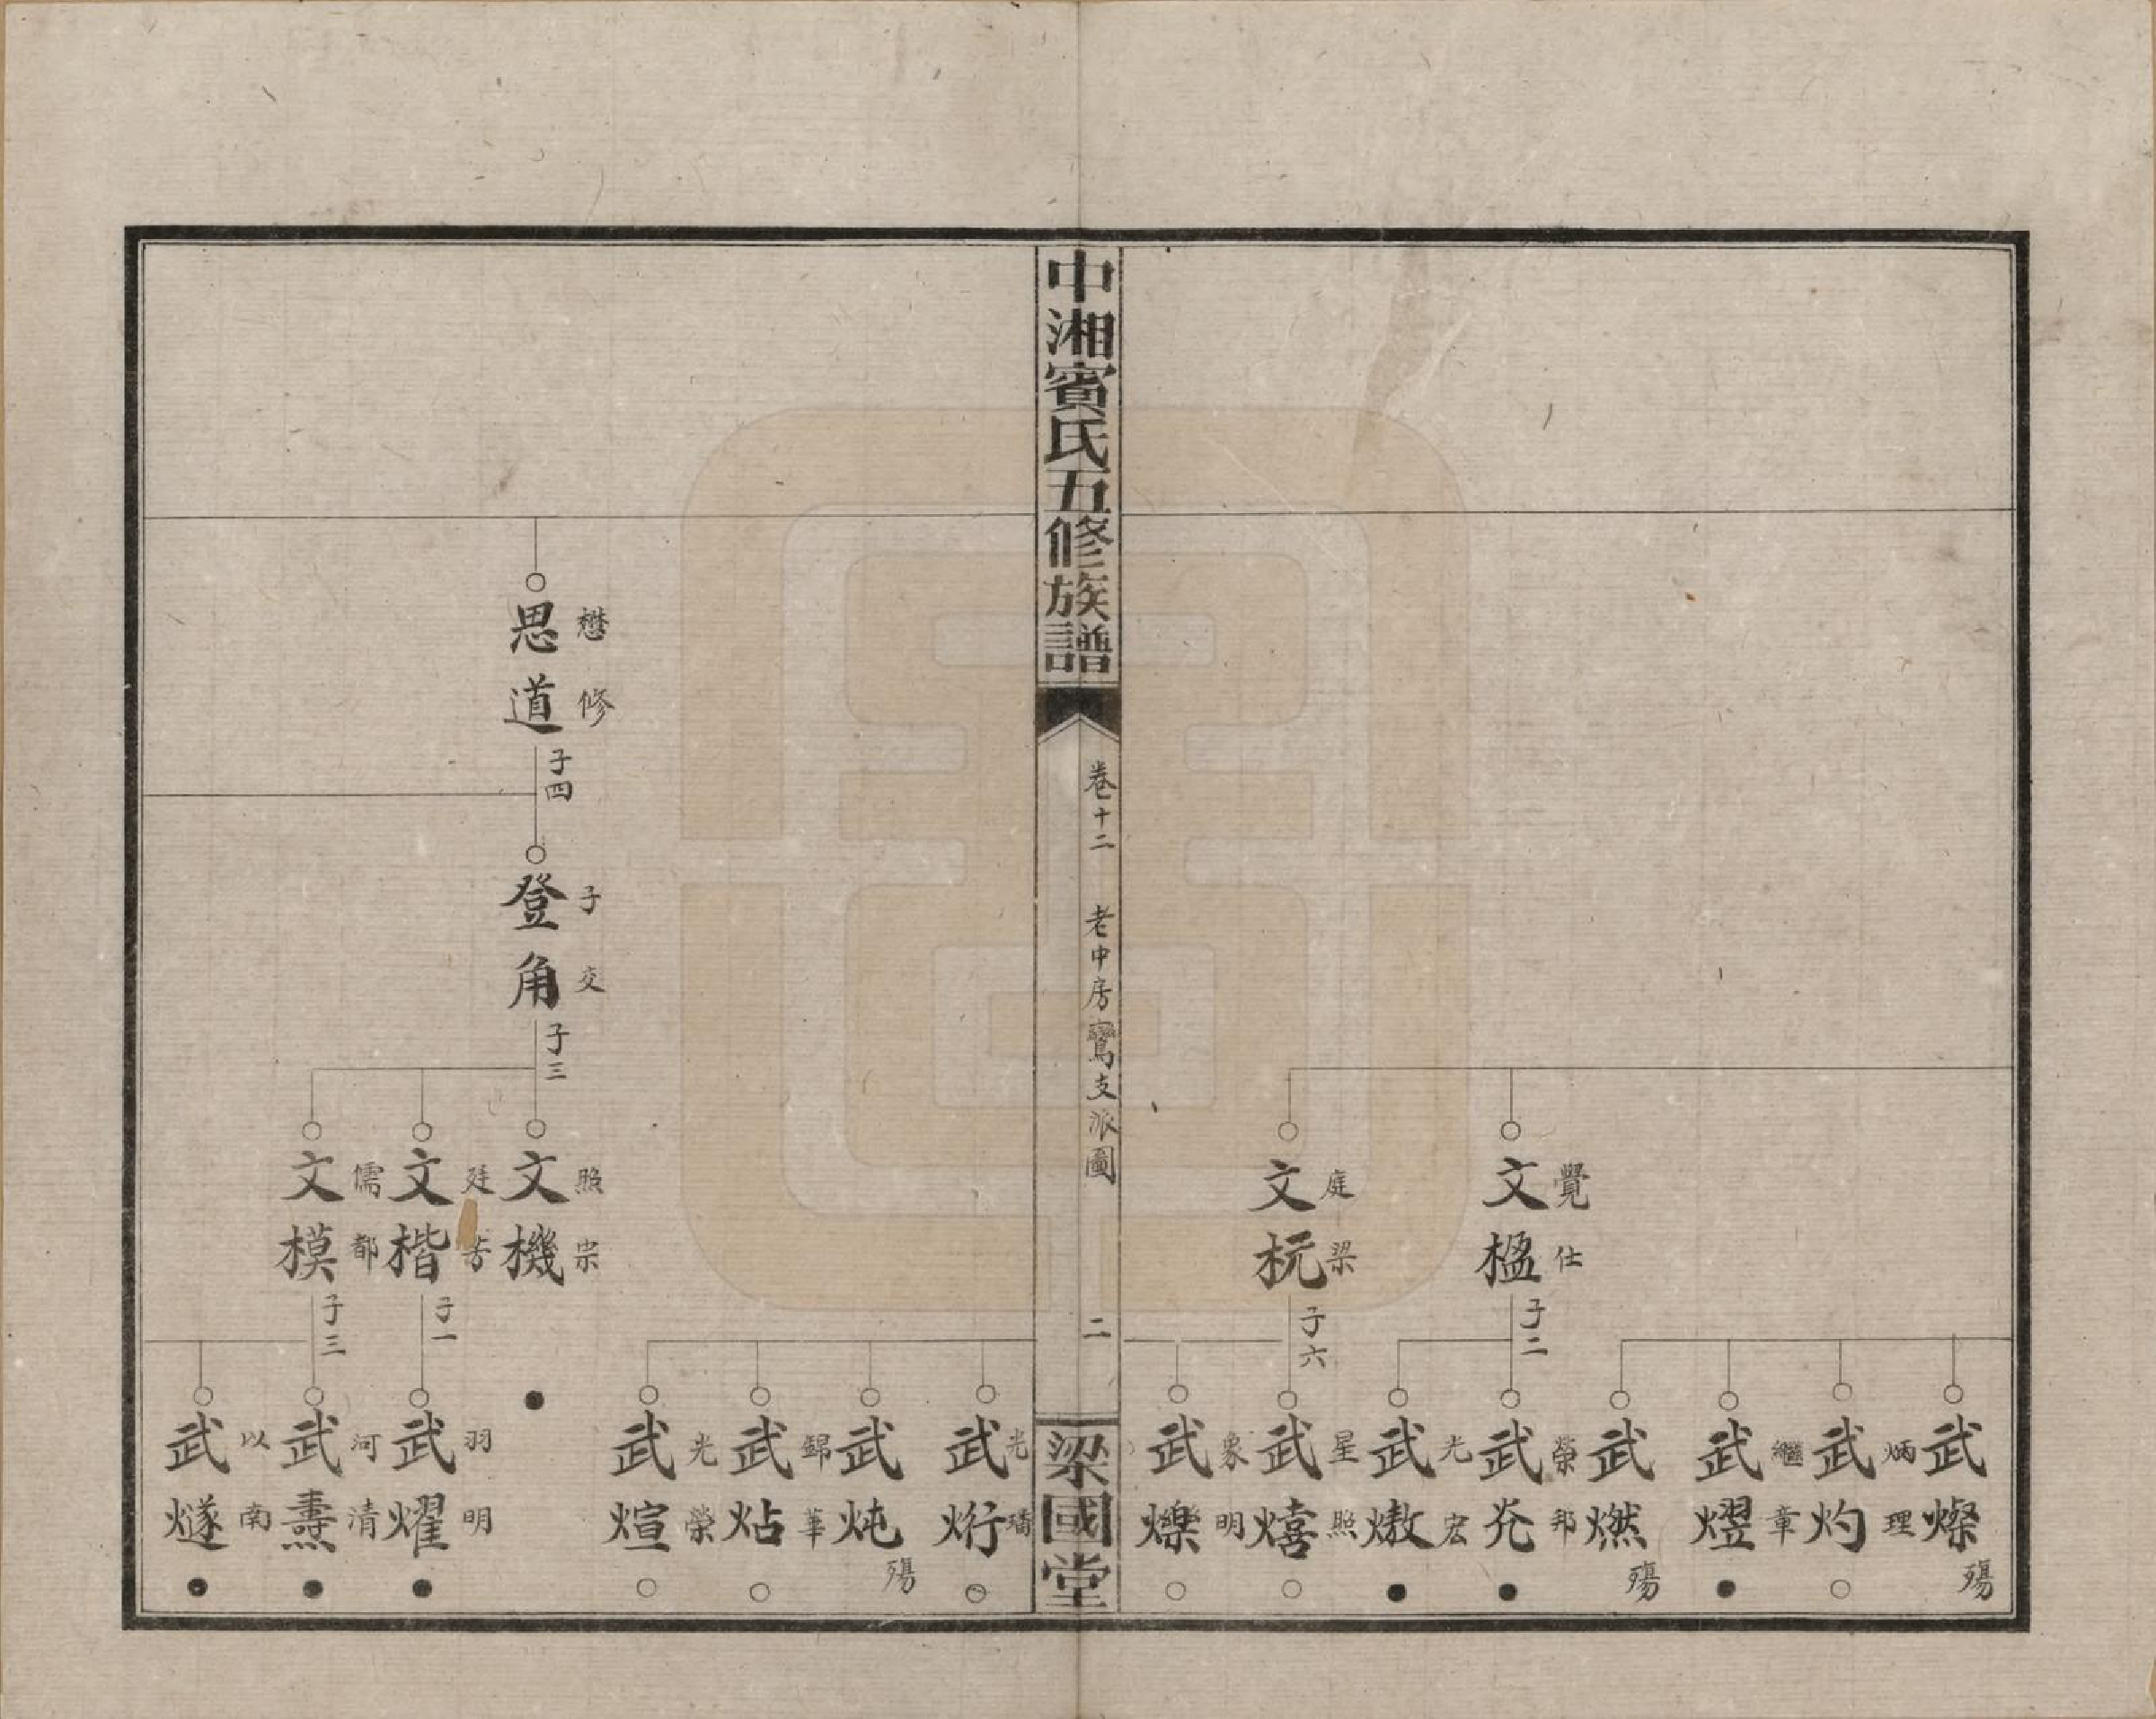 武燦
殤
炳理
武灼
繼章
武熤
武燃
殤
覺仕
文楹
子二
榮邦
武光
光宏
武熬
庭梁
文杬
子六
星照
武熺
象明
武爍
中湘賓氏五修族譜
卷十二 老中房鸞支派圖
二
梁國堂
光璠
武烆
武炖
殤
錦華
武炶
光榮
武煊
懋修
思道
子四
子交
登角
子三
照宗
文機
廷芳
文楷
子一
羽明
武燿
儒都
文模
子三
河清
武燾
以南
武燧